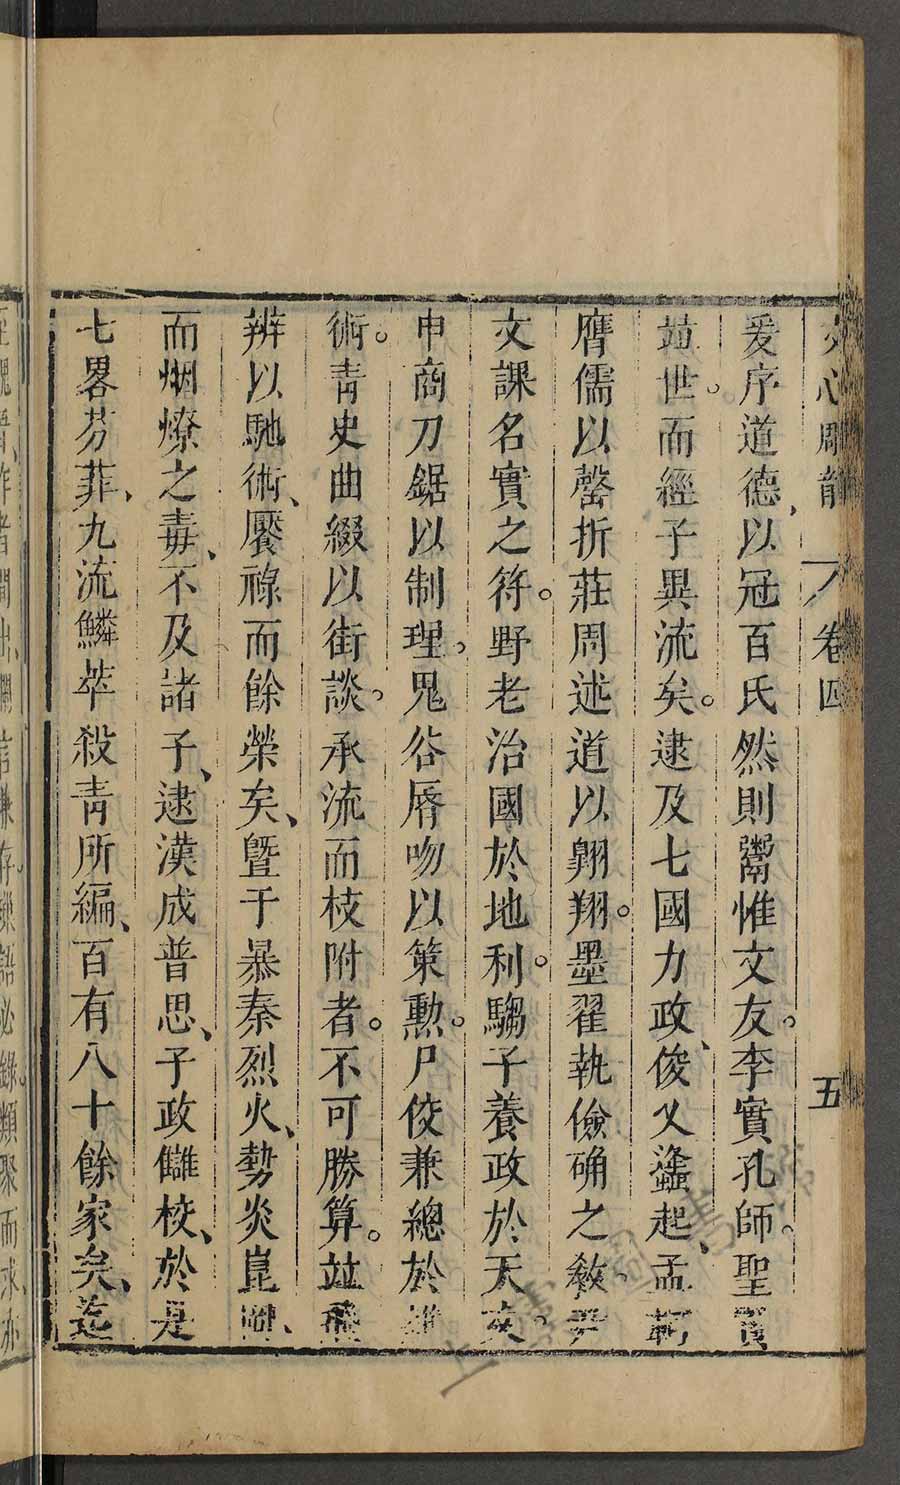 文心雕龍 卷四 五
爰序道德、以冠百氏然則鬻惟文友。李實孔師。聖賢
並世。而經子異流矣。逮及七國力政、俊乂蠭起、孟軻
膺儒以罄折莊周述道以翺翔。墨翟執儉确之教。尹
文課名實之符。野老治國於地利。騶子養政於天文。
申商刀鋸以制理。鬼谷唇吻以策勲。尸佼兼總於雜
術。青史曲綴以街談。承流而枝附者。不可勝算。竝飛
辨以馳術、饜祿而餘榮矣、曁于暴秦烈火、勢炎崑岡、
而烟燎之毒、不及諸子、逮漢成普思、子政讎校、於是
七畧芬菲、九流鱗萃殺青所編、百有八十餘家矣、迄